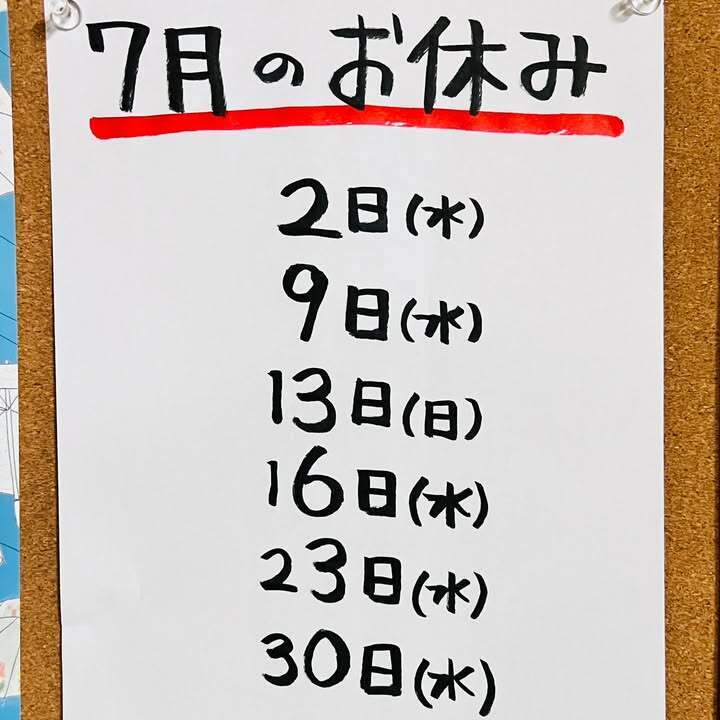 7月のお休み
2日(水)
9日(水)
13日(日)
16日(水)
23日(水)
30日(水)